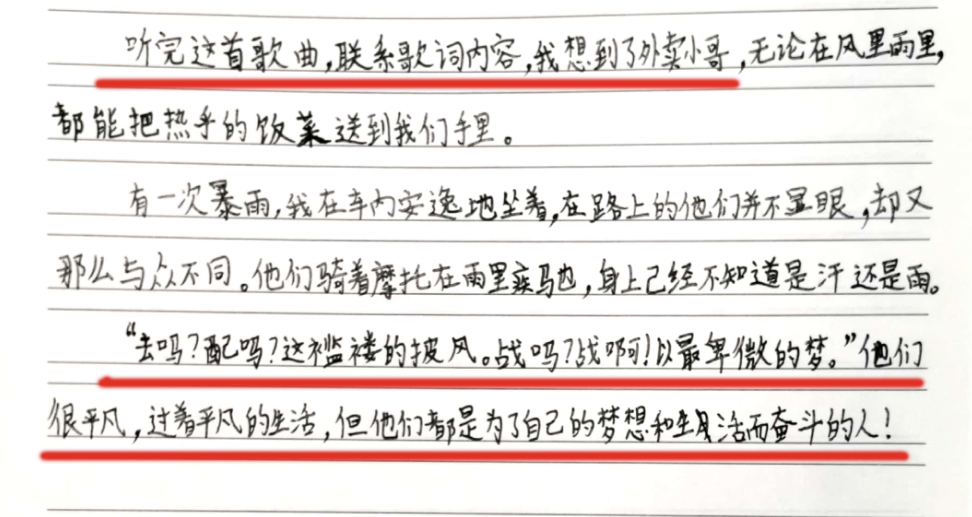 听完这首歌曲,联系歌词内容,我想到了外卖小哥,无论在风里雨里,
都能把热乎的饭菜送到我们手里。
有一次暴雨,我在车内安逸地坐着,在路上的他们并不显眼,却又
那么与众不同。他们骑着摩托在雨里疾驰,身上已经不知道是汗还是雨。
“去吗?配吗?这褴褛的披风。战吗?战啊!以最卑微的梦。”他们
很平凡,过着平凡的生活,但他们都是为了自己的梦想和生活而奋斗的人!